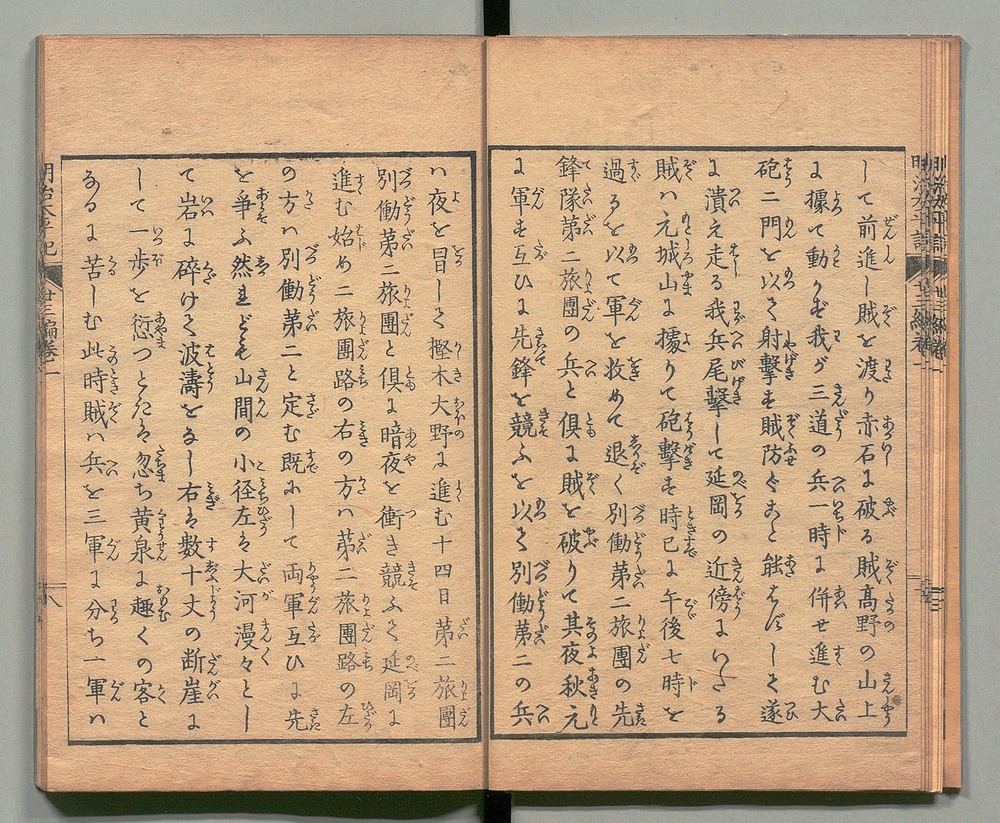 して前進し賊を渡り赤石に破る賊髙野の山上
に據て動かず我が三道の兵一時に併せ進む大
砲二門を以て射撃す賊防ぐこと能はずして遂
に潰え走る我兵尾撃して延岡の近傍にいたる
賊ハ元城山に據りて砲撃す時已に午後七時を
過るを以て軍を收めて退く別働第二旅團の先
鋒隊第二旅團の兵と倶に賊を破りて其夜秋元
に軍す互ひに先鋒を競ふを以て別働第二の兵
ハ夜を冒して樫木大野に進む十四日第二旅團
別働第二旅團と倶に暗夜を衝き競ふて延岡に
進む始め二旅團路の右の方ハ第二旅團路の左
の方ハ別働第二と定む既にして両軍互ひに先
を争ふ然れども山間の小径左は大河漫々とし
て岩に碎けて波濤をなし右は数十丈の断崖に
して一歩を愆つときは忽ち黄泉に趣くの客と
なるに苦しむ此時賊ハ兵を三軍に分ち一軍ハ
明治太平記
廿三編巻一